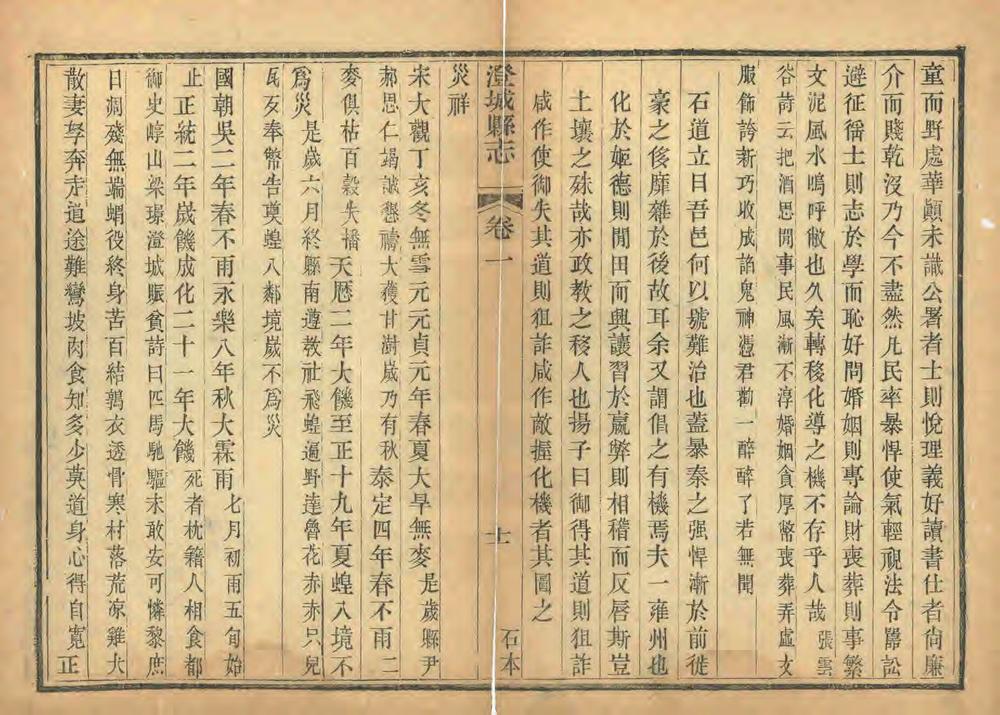 童而野處華顚未識公署者士則悅理義好讀書仕者尙廉
介而賤乾沒乃今不盡然凡民率暴悍使氣輕視法令嚚訟
避征徭士則志於學而恥好問婚姻則專論財喪葬則事繁
文泥風水嗚呼敝也久矣轉移化導之機不存乎人哉張雲
谷詩云把酒思閒事民風漸不淳婚姻貪厚幣喪葬弄虛文
服飾誇新巧收成諂鬼神憑君勸一醉醉了若無聞
石道立曰吾邑何以號難治也蓋暴秦之强悍漸於前徙
豪之侈靡雜於後故耳余又謂倡之有機焉夫一雍州也
化於姬德則閒田而興讓習於嬴弊則相稽而反唇斯豈
土壤之殊哉亦政教之移人也揚子曰御得其道則狙詐
咸作使御失其道則狙詐咸作敵握化機者其圖之
澄城縣志 卷一 十 石本
災祥
宋大觀丁亥冬無雪元元貞元年春夏大旱無麥是歲縣尹
郝思仁竭誠懇禱大獲甘澍歲乃有秋泰定四年春不雨二
麥俱枯百穀失播天厯二年大饑至正十九年夏蝗入境不
爲災是歲六月終縣南遵教社飛蝗遍野達魯花赤赤只兒
瓦歹奉幣告奠蝗入鄰境歲不爲災
國朝吳二年春不雨永樂八年秋大霖雨七月初雨五旬始
止正統二年歲饑成化二十一年大饑死者枕籍人相食都
御史崞山梁璟澄城賑貧詩曰匹馬馳驅未敢安可憐黎庶
日凋殘無端蝟役終身苦百結鶉衣透骨寒村落荒凉雞犬
散妻孥奔走道途難鸞坡肉食知多少莫道身心得自寬正